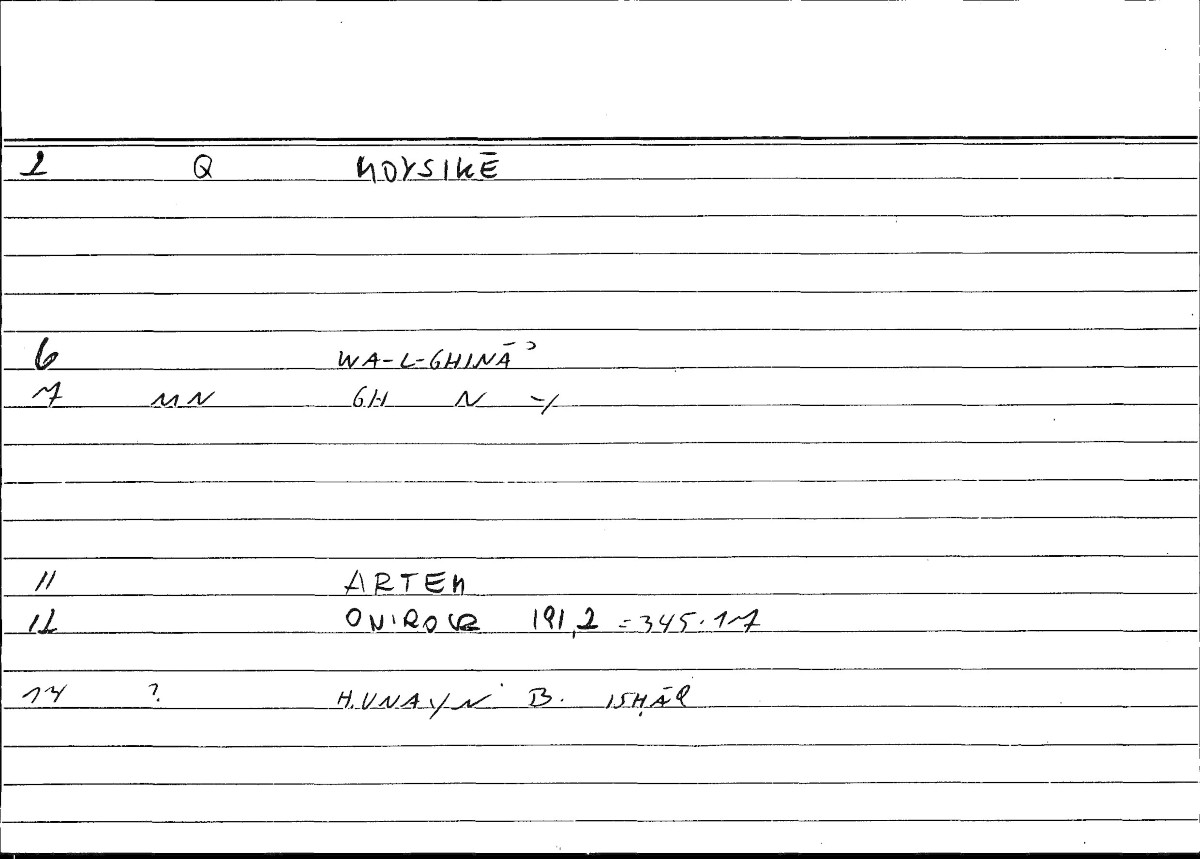 1 Q MOYSIKĒ
6 WA-L-GHINĀʾ
7 MN GH N -/
11 ARTEM
12 ONIROCR 191,2 =345.17
14 ? ḤUNAYN B. ISḤĀQ